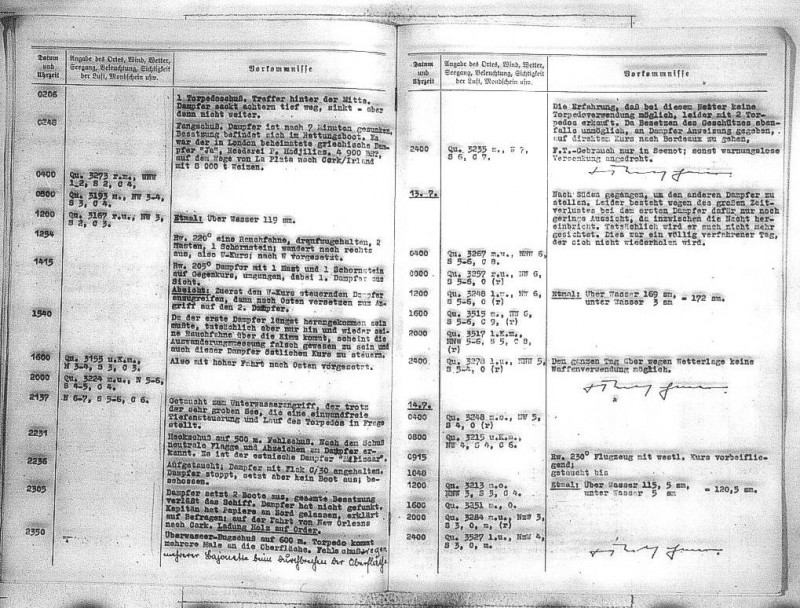 Datum und Uhrzeit
Angabe des Ortes, Wind, Wetter, Seegang, Beleuchtung, Sichtigkeit der Luft, Mondschein usw.
Vorkommnisse
0206
1 Torpedoschuß. Treffer hinter der Mitte.
Dampfer sackt achtern tief weg, sinkt aber
dann nicht weiter.
0248
Fangschuß. Dampfer ist nach 7 Minuten gesunken,
Besatzung befindet sich im Rettungsboot. Es
war der in London beheimatete griechische Dam-
pfer "Ia", Reederei P. Hadjilias, 4 900 BRT,
auf dem Wege von La Plata nach Cork/Irland
mit 8 000 t Weizen.
0400
Qu. 3273 r.m., NNW
1-2, S 2, C 4.
0800
Qu. 3193 m., NW 3-4,
S 3, C 4.
1200
Qu. 3167 r.u., NW 3,
S 2, C 3.
Etmal: Über Wasser 119 sm.
1254
Rw. 220° eine Rauchfahne, draufzugehalten, 2
Masten, 1 Schornstein; wandert nach rechts
aus, also W-Kurs; nach W vorgesetzt.
1415
Rw. 205° Dampfer mit 1 Mast und 1 Schornstein
auf Gegenkurs, umgangen, dabei 1. Dampfer aus
Sicht.
Absicht: Zuerst den W-Kurs steuernden Dampfer
anzugreifen, dann nach Osten versetzen zum An-
griff auf den 2. Dampfer.
1540
Da der erste Dampfer längst herangekommen sein
mußte, tatsächlich aber nur hin und wieder sei-
ne Rauchfahne über die Kimm kommt, scheint die
Auswanderungsmessung falsch gewesen zu sein und
auch dieser Dampfer östlichen Kurs zu steuern.
Also mit hoher Fahrt nach Osten vorgesetzt.
1600
Qu. 3195 u.K.m.,
N 3-4, S 3, C 3.
2000
Qu. 3224 m.u., N 5-6,
S 4-5, C 4.
2137
N 6-7, S 5-6, C 6.
Getaucht zum Unterwasserangriff, der trotz
der sehr groben See, die eine einwandfreie
Tiefensteuerung und Lauf des Torpedos in Frage
stellt.
2231
Heckschuß auf 500 m. Fehlschuß. Nach dem Schuß
neutrale Flagge und Abzeichen am Dampfer er-
kannt. Es ist der estnische Dampfer
2236
Aufgetaucht; Dampfer mit Flak C/30 angehalten.
Dampfer stoppt, setzt aber kein Boot aus; be-
schossen.
2305
Dampfer setzt 2 Boote aus, gesamte Besatzung
verläßt das Schiff. Dampfer hat nicht gefunkt.
Kapitän hat Papiere an Bord gelassen, erklärt
auf Befragen: auf der Fahrt von New Orleans
nach Cork. Ladung Holz auf Order.
2350
Überwasser-Bugschuß auf 600 m. Torpedo kommt
mehrere Male an die Oberfläche. Fehlschuß wegen
mehrerer beim Durchbrechen der Oberfläche
Datum und Uhrzeit
Angabe des Ortes, Wind, Wetter, Seegang, Beleuchtung, Sichtigkeit der Luft, Mondschein usw.
Vorkommnisse
Die Erfahrung, daß bei diesem Wetter keine
Torpedoverwendung möglich, leider mit 2 Tor-
pedos erkauft. Da Besetzen des Geschützes eben-
falls unmöglich, an Dampfer Anweisung gegeben,
auf direktem Kurs nach Bordeaux zu gehen,
2400
Qu. 3235 m., N 7,
S 6, C 7.
F.T.-Gebrauch nur in Seenot; sonst warnungslose
Versenkung angedroht.
13.7.
Nach Süden gegangen, um den anderen Dampfer zu
stellen. Leider besteht wegen des großen Zeit-
verlustes bei dem ersten Dampfer dafür nur noch
geringe Aussicht, da inzwischen die Nacht her-
einbricht. Tatsächlich wird er auch nicht mehr
gesichtet. Dies war ein völlig verfahrener Tag,
der sich nicht wiederholen wird.
0400
Qu. 3267 m.u., NNW 6,
S 5-6, C 8.
0800
Qu. 3257 r.u., NW 6,
S 5-6, O (r)
1200
Qu. 3248 l.m., NW 6,
S 5-6, O (r)
Etmal: Über Wasser 169 sm,
unter Wasser 3 sm = 172 sm.
1600
Qu. 3515 m., NW 6,
S 6, C 9, (r)
2000
Qu. 3517 l.K.m.,
NNW 5-6, S 5, C 8,
(r)
2400
Qu. 3278 l.u., NNW 5,
S 5-4, O (r)
Den ganzen Tag über wegen Wetterlage keine
Waffenverwendung möglich.
14.7.
0400
Qu. 3248 m.o., NW 5,
S 4, O (r)
0800
Qu. 3215 u.K.m.,
NW 4, S 4, C 6.
0915
Rw. 230° Flugzeug mit westl. Kurs vorbeiflie-
gend;
1048
getaucht bis
1200
Qu. 3213 m.o.,
NNW 3, S 3, C 4.
Etmal: Über Wasser 115,5 sm,
unter Wasser 5 sm = 120,5 sm.
1600
Qu. 3251 m., O.
2000
Qu. 3284 m.u., NNW 3,
S 3, O, m, (r)
2400
Qu. 3527 l.m., NNW 4,
S 3, O, m.